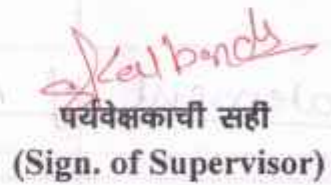 पर्यवेक्षकाची सही
(Sign. of Supervisor)